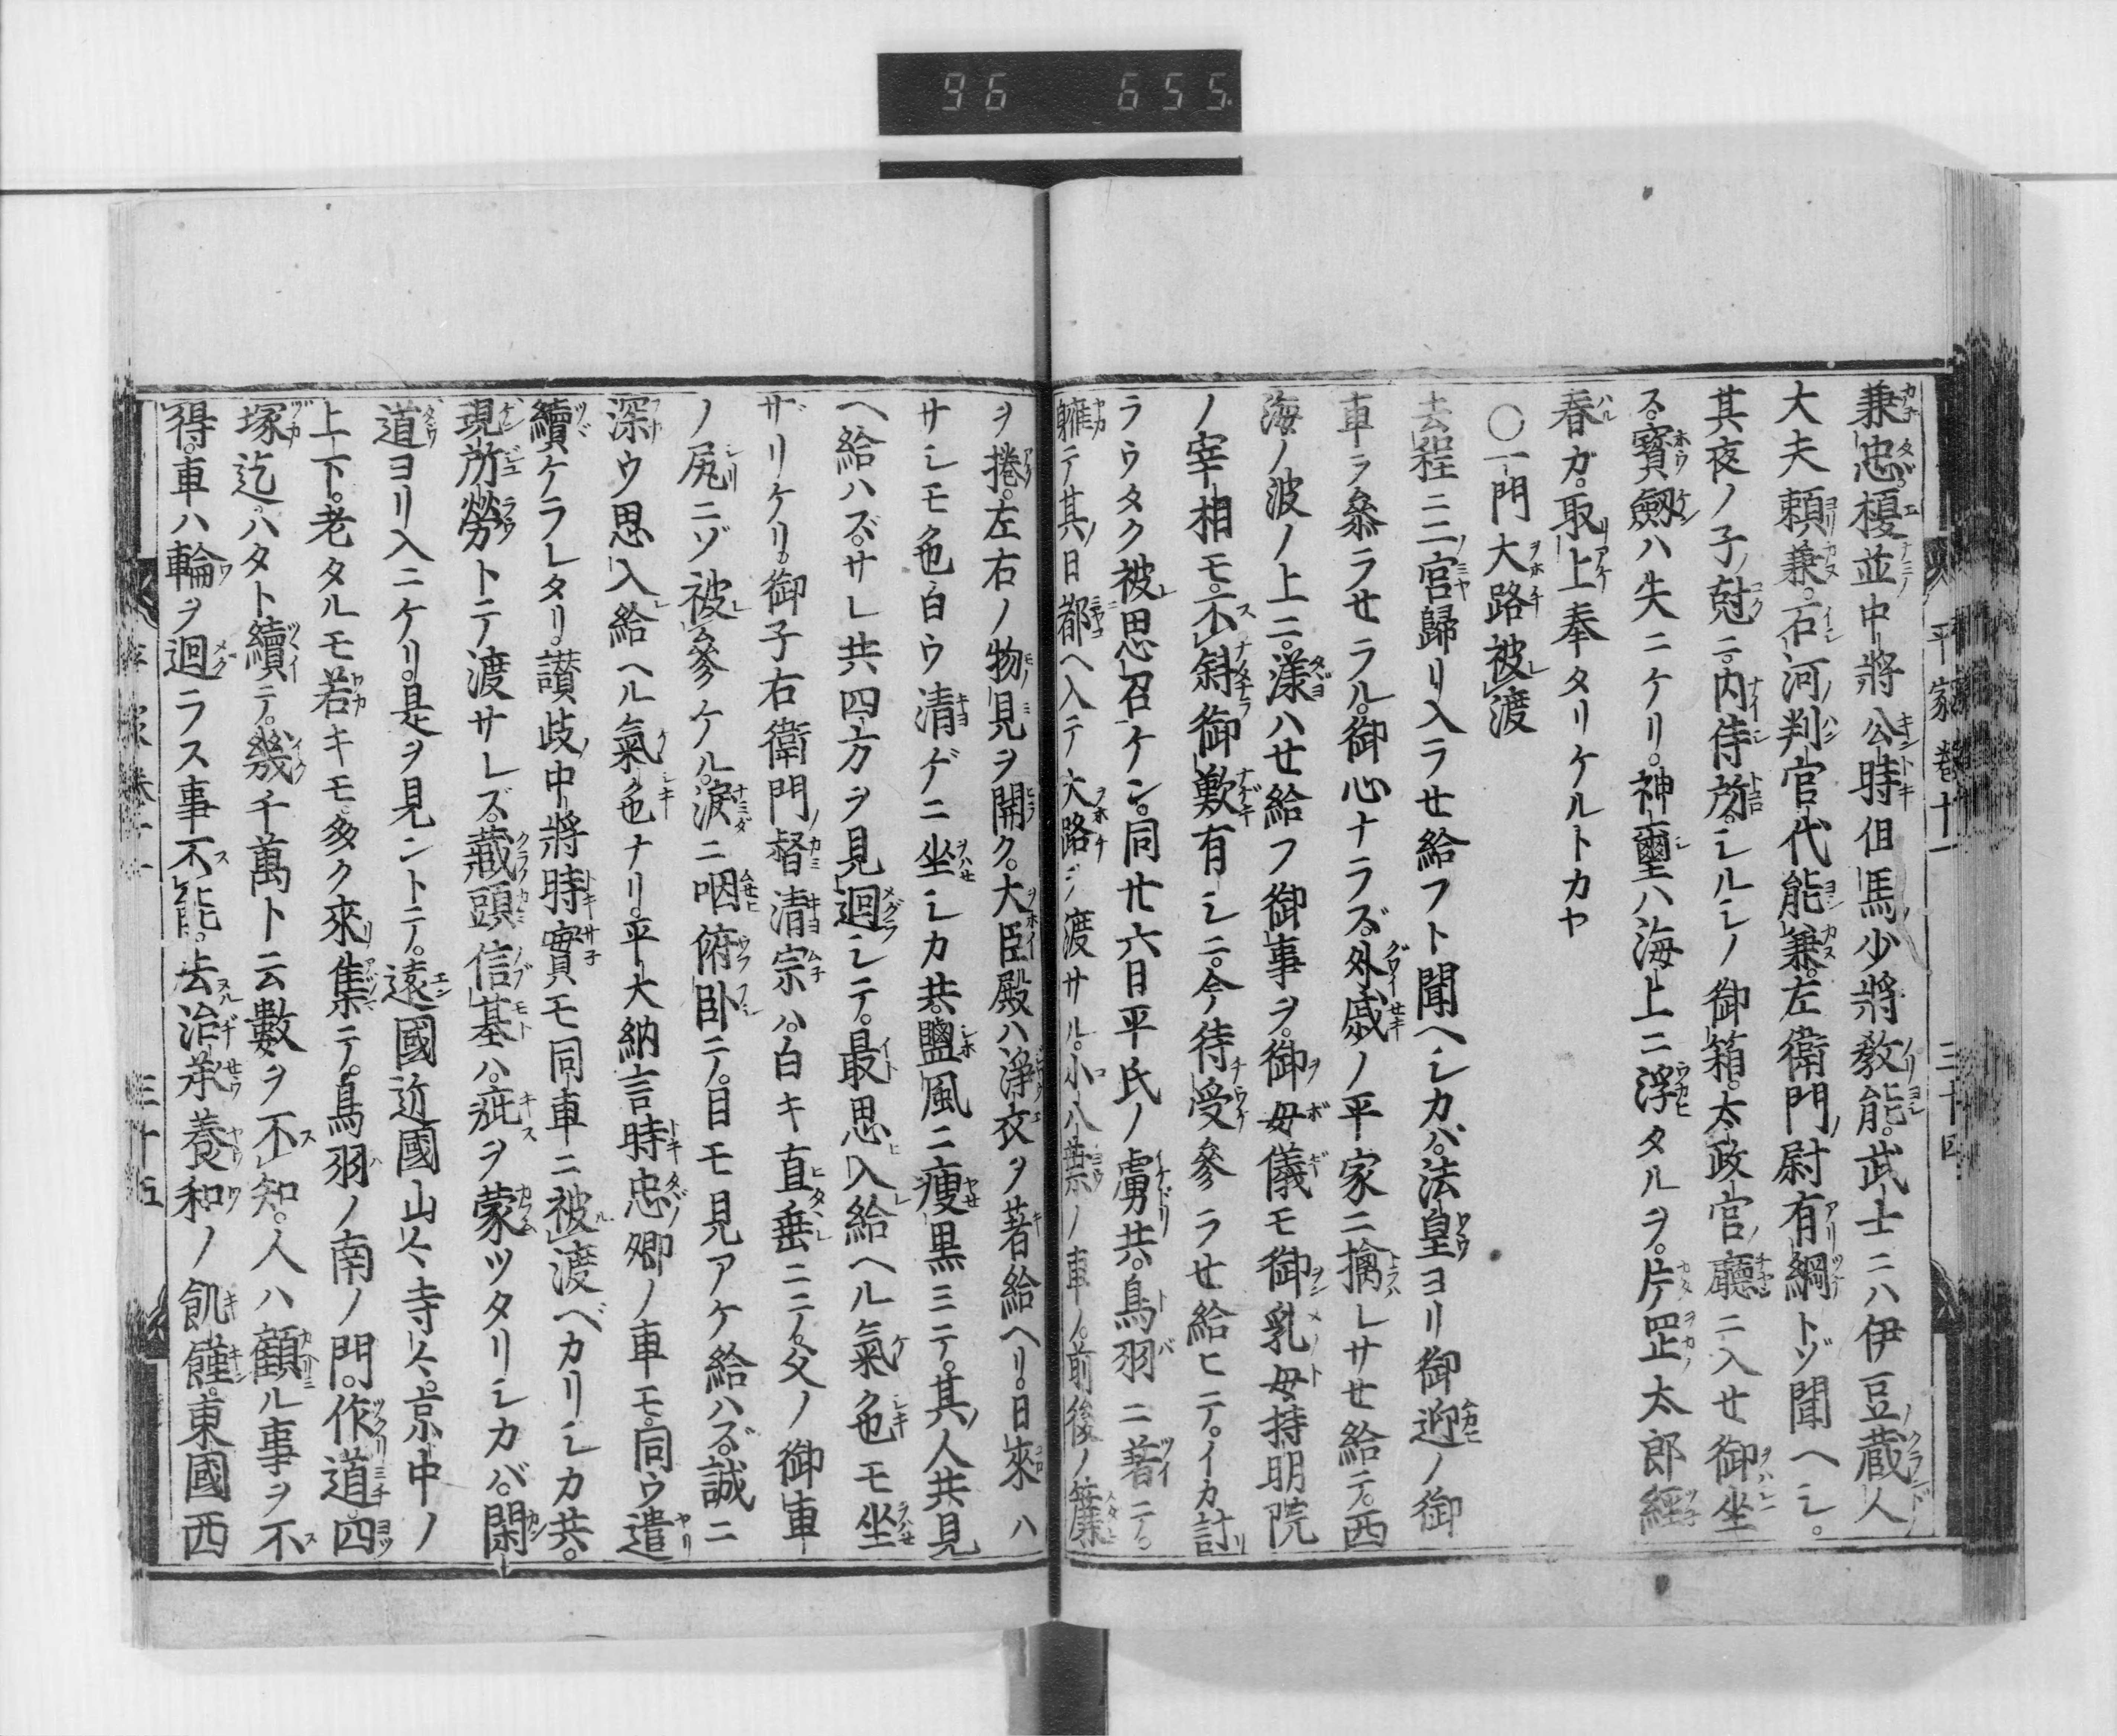 96 655
平家巻十一 三十四
兼忠。榎並中将公時但馬少将教能。武士ニハ伊豆蔵人
大夫頼兼。石河判官代能兼。左衛門尉有綱トゾ聞ヘシ。
其夜ノ子ノ尅ニ。内侍所。シルシノ御箱。太政官ノ廳ニ入セ御坐
ス。寶劔ハ失ニケリ。神璽ハ海上ニ浮タルヲ。片罡太郎經
春ガ。取上奉タリケルトカヤ
〇一門大路被渡
去程ニ二宮歸リ入ラせ給フト聞ヘシカバ。法皇ヨリ御迎ノ御
車ヲ叅ラせラル。御心ナラズ。外戚ノ平家ニ擒レサせ給テ。西
海ノ波ノ上ニ。漾ハせ給フ御事ヲ。御母儀モ御乳母持明院
ノ宰相モ。不斜御歎有シニ。今待受參ラせ給ヒテ。イカ計
ラウタク被思召ケン。同廿六日平氏ノ虜共。鳥羽ニ著テ。
軈テ其日都ヘ入テ大路ヲ渡サル。小八葉ノ車ノ。前後ノ簾
ヲ捲。左右ノ物見ヲ開ク。大臣殿ハ浄衣ヲ著給ヘリ。日來ハ
サシモ色白ウ清ゲニ坐シカ共。鹽風ニ痩黒ミテ。其人共見
ヘ給ハズ。サレ共四方ヲ見廻シテ。最思入給ヘル氣色モ坐
ザリケリ。御子右衛門督清宗ハ。白キ直垂ニテ。父ノ御車
ノ尻ニゾ被參ケル。涙ニ咽俯卧テ。目モ見アケ給ハズ。誠ニ
深ウ思入給ヘル氣色ナリ。平大納言時忠卿ノ車モ。同ウ遣
續ケラレタリ。讃岐中将時實モ同車ニ被渡ベカリシカ共。
現所勞トテ渡サレズ。蔵頭信基ハ。疵ヲ蒙ツタリシカバ。閑
道ヨリ入ニケリ。是ヲ見ントテ。遠國近國山々寺々。京中ノ
上下。老タルモ若キモ。多ク來リ集テ。鳥羽ノ南ノ門。作道。四
塚迄。ハタト續テ。幾千萬ト云數ヲ不知。人ハ顧ル事ヲ不
得。車ハ輪ヲ廻ラス事不能。去治承養和ノ飢饉。東國西
三十五